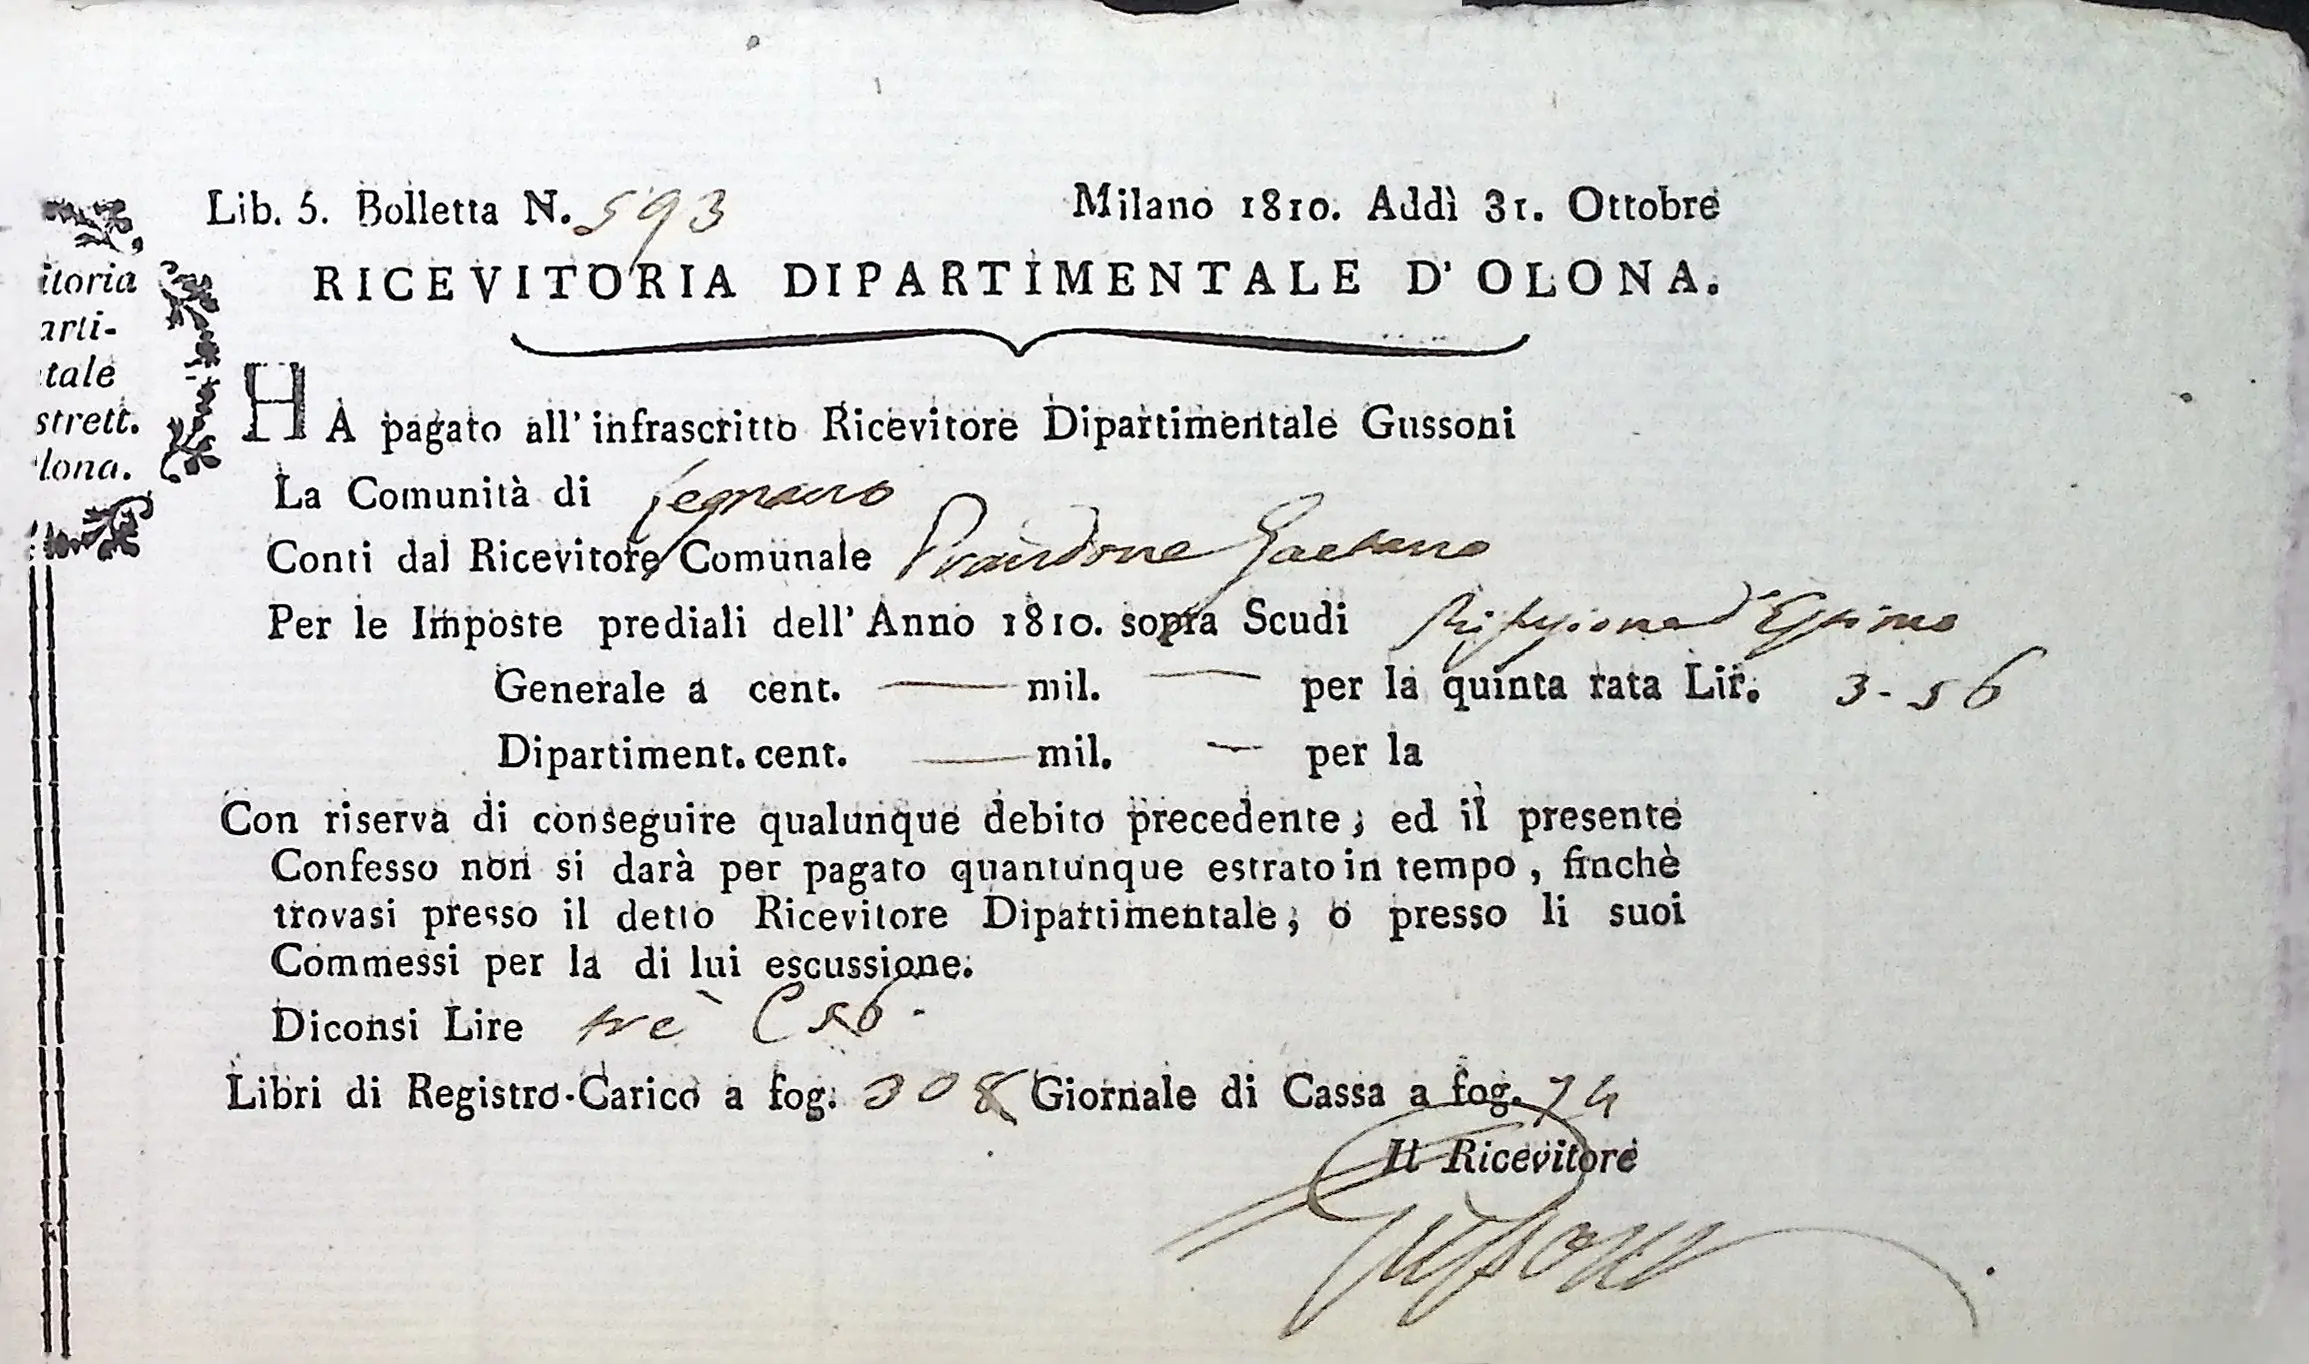 Lib. 5. Bolletta N. 593
Milano 1810. Addì 31. Ottobre
RICEVITORIA DIPARTIMENTALE D' OLONA.
itoria
arti-
tale
strett.
lona.
HA pagato all' infrascritto Ricevitore Dipartimentale Gussoni
La Comunità di Legnano
Conti dal Ricevitore Comunale Prandone Gaetano
Per le Imposte prediali dell' Anno 1810. sopra Scudi
Generale a cent. — mil. — per la quinta rata Lir. 3-56
Dipartiment. cent. — mil. — per la
Con riserva di conseguire qualunque debito precedente; ed il presente
Confesso non si darà per pagato quantunque estrato in tempo, finchè
trovasi presso il detto Ricevitore Dipartimentale, o presso li suoi
Commessi per la di lui escussione.
Diconsi Lire trè C 56.
Libri di Registro-Carico a fog. 308 Giornale di Cassa a fog. 74
Il Ricevitore
Gussoni